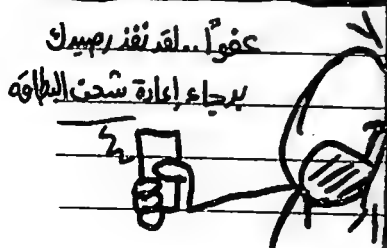 عفواً..لقد نفذ رصيدك
برجاء إعادة شحن البطاقة